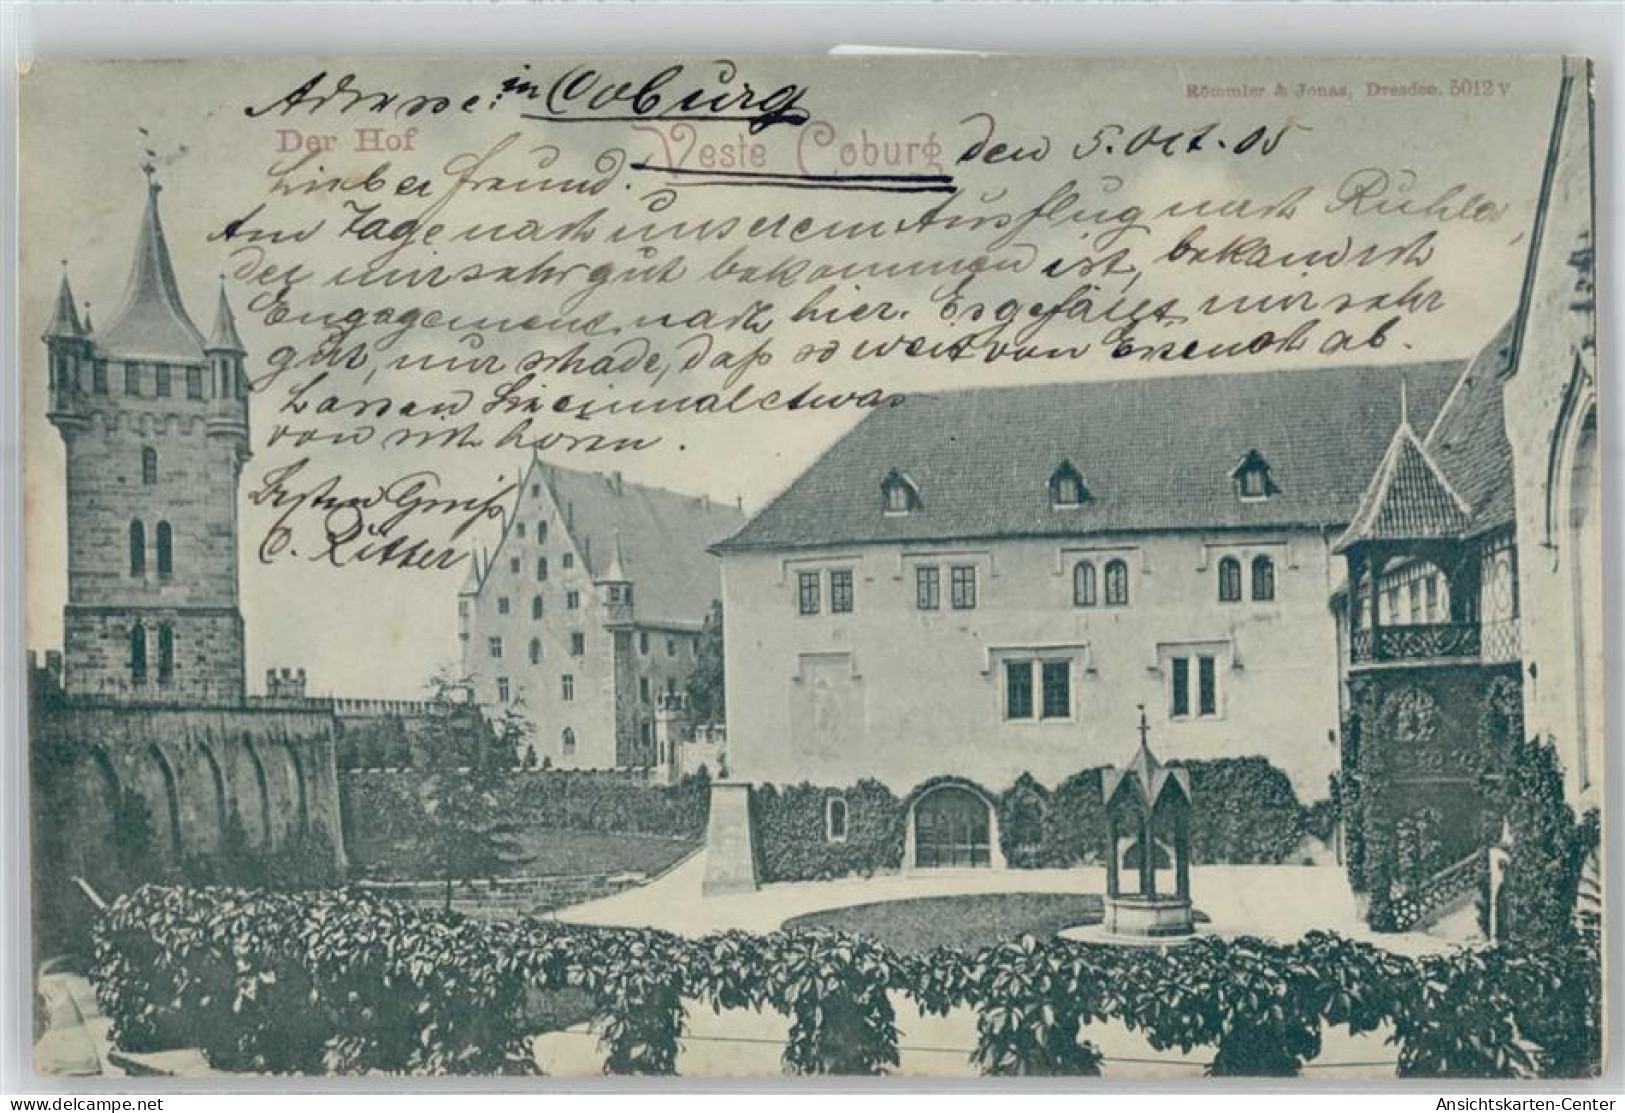 Adresse: in Coburg
Römmler & Jonas, Dresden. 5012 v
Der Hof
Veste Coburg
den 5. Okt. 05
Lieber Freund.
Am Tage nach unserem Ausflug nach Ruhla,
der mir sehr gut bekommen ist, bekam ich
Engagement nach hier. Es gefällt mir sehr
gut, nur schade, daß so weit von Eisenach ab.
Lassen Sie einmal etwas
von sich hören.
Besten Gruß
O. Ritter
delcampe.net
Ansichtskarten-Center